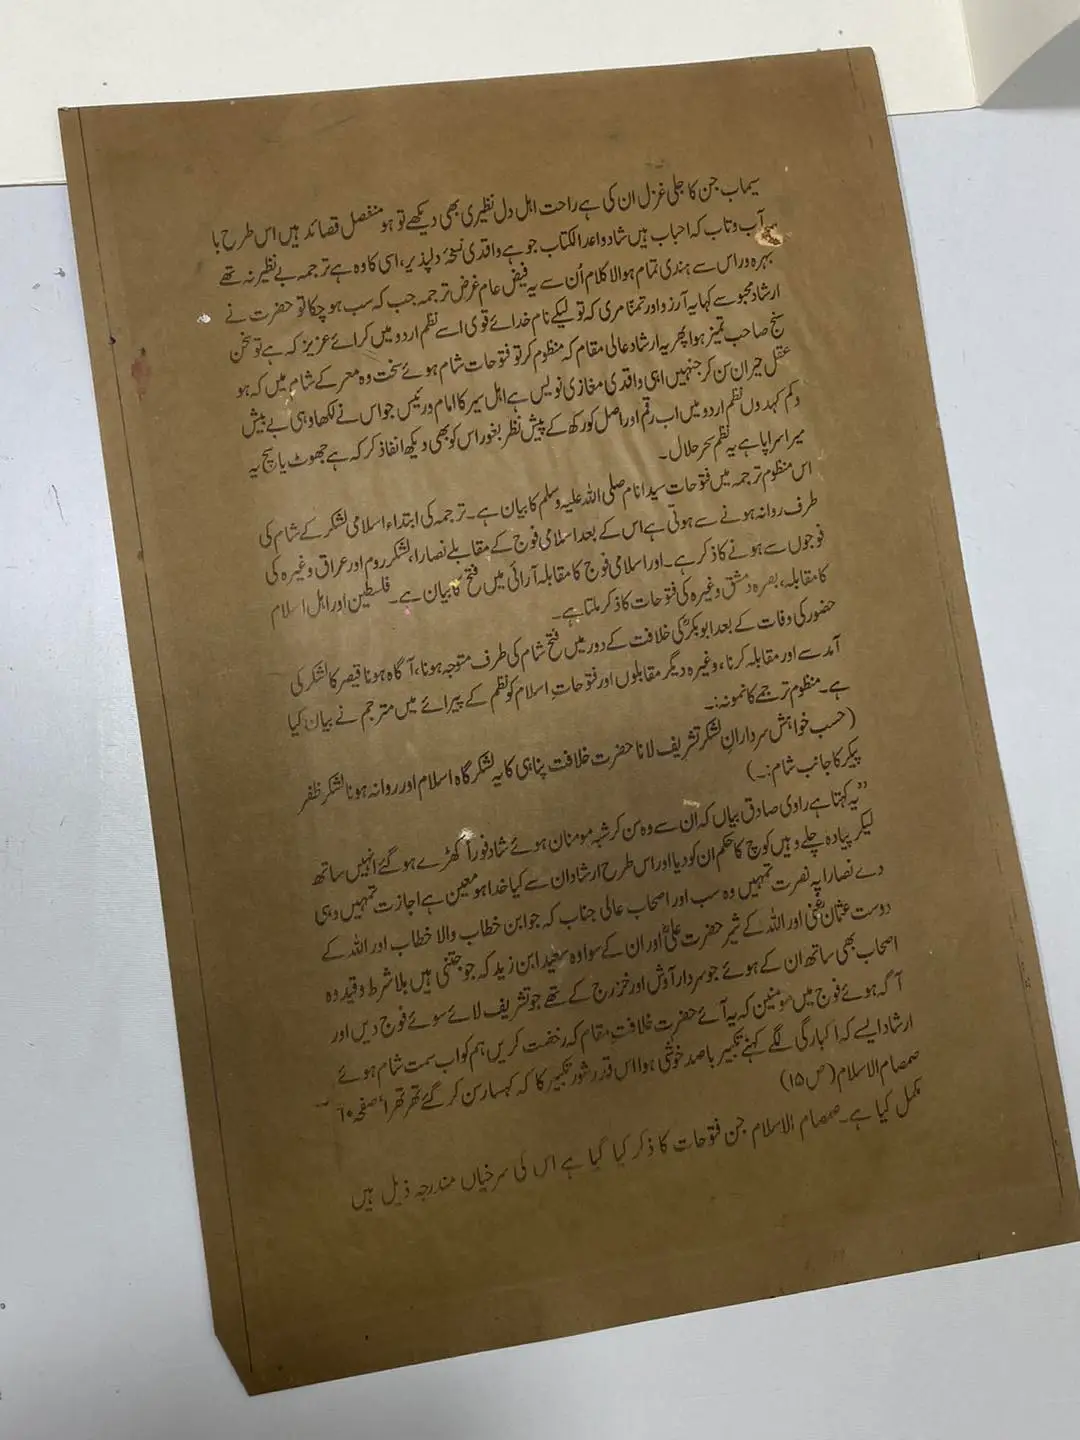 سیماب جن کا جلی غزل ان کی ہے راحت اہل دل نظیری بھی دیکھے تو ہو منفصل قصائد ہیں اس طرح با
آب وتاب کہ احباب ہیں شاد واعدالکتاب جو ہے واقدی نسخۂ دلپذیر، اسی کا وہ ہے ترجمہ بے نظیر نہ تھے
بہرہ وراس سے ہندی تمام ہوالا کلام اُن سے یہ فیض عام غرض ترجمہ جب کہ سب ہو چکا تو حضرت نے
ارشاد مجبو سے کہا یہ آرزو اور تمنّا مری کہ تو لیکے نام خدائے قوی اسے نظم اردو میں کرائے عزیز کہ ہے تو سخن
سنج صاحب تمیز ہوا پھر یہ ارشاد عالی مقام کہ منظوم کر تو فتوحات شام ہوئے سخت وہ معرکے شام میں کہ ہو
عقل حیران سن کر جنہیں اہی واقدی مغازی نویس ہے اہل سیر کا امام ورئیس جو اس نے لکھا وہی بے بیش
وکم کہدوں نظم اردو میں اب رقم اور اصل کو رکھ کے پیش نظر بغور اس کو بھی دیکھ انفاذ کر کہ ہے جھوٹ یا سچ یہ
میرا سراپا ہے یہ نظم سحر حلال۔
اس منظوم ترجمہ میں فتوحات سید انام صلی اللہ علیہ وسلم کا بیان ہے۔ ترجمہ کی ابتداء اسلامی لشکر کے شام کی
طرف روانہ ہونے سے ہوتی ہے اس کے بعد اسلامی فوج کے مقابلے نصارا، لشکر روم اور عراق وغیرہ کی
فوجوں سے ہونے کا ذکر ہے۔ اور اسلامی فوج کا مقابلہ آرائی میں فتح کا بیان ہے۔ فلسطین اور اہل اسلام
کا مقابلہ، بصرہ دمشق وغیرہ کی فتوحات کا ذکر ملتا ہے۔
حضور کی وفات کے بعد ابوبکرؓ کی خلافت کے دور میں فتح شام کی طرف متوجہ ہونا، آگاہ ہونا قیصر کا لشکر کی
آمد سے اور مقابلہ کرنا، وغیرہ دیگر مقابلوں اور فتوحاتِ اسلام کو نظم کے پیرائے میں مترجم نے بیان کیا
ہے۔ منظوم ترجمے کا نمونہ:۔
(حسب خواہش سردارانِ لشکر تشریف لانا حضرت خلافت پناہی کا یہ لشکر گاہ اسلام اور روانہ ہونا لشکر ظفر
پیکر کا جانب شام:۔)
”یہ کہتا ہے راوی صادق بیاں کہ ان سے وہ سن کر شہ مومنان ہوئے شاد فوراً کھڑے ہو گئے انہیں ساتھ
لیکر پیادہ چلے وہیں کوچ کا حکم ان کو دیا اور اس طرح ارشاد ان سے کیا خدا ہو معین ہے اجازت تمہیں وہی
دے نصارا پہ نصرت تمہیں وہ سب اور اصحاب عالی جناب کہ جو ابن خطاب والا خطاب اور اللہ کے
دوست عثمان غنیؓ اور اللہ کے شیر حضرت علیؓ اور ان کے سوا وہ سعید ابن زید کہ جو جنتی ہیں بلا شرط وقید وہ
اصحاب بھی ساتھ ان کے ہوئے جو سردار آوش اور خزرج کے تھے جو تشریف لائے سوئے فوج دیں اور
آگہ ہوئے فوج میں مومنین کہ یہ آئے حضرت خلافتِ مقام کہ رخصت کریں ہم کو اب سمت شام ہوئے
ارشاد ایسے کہ اکبارگی لگے کہنے تکبیر با صد خوشی ہوا اس قدر شور تکبیر کا کہ کہسار سن کر گئے تھر تھرا، صفحہ ۶۰
صمصام الاسلام (ص ۱۵)
مکمل کیا ہے۔ صمصام الاسلام جن فتوحات کا ذکر کیا گیا ہے اس کی سرخیاں مندرجہ ذیل ہیں